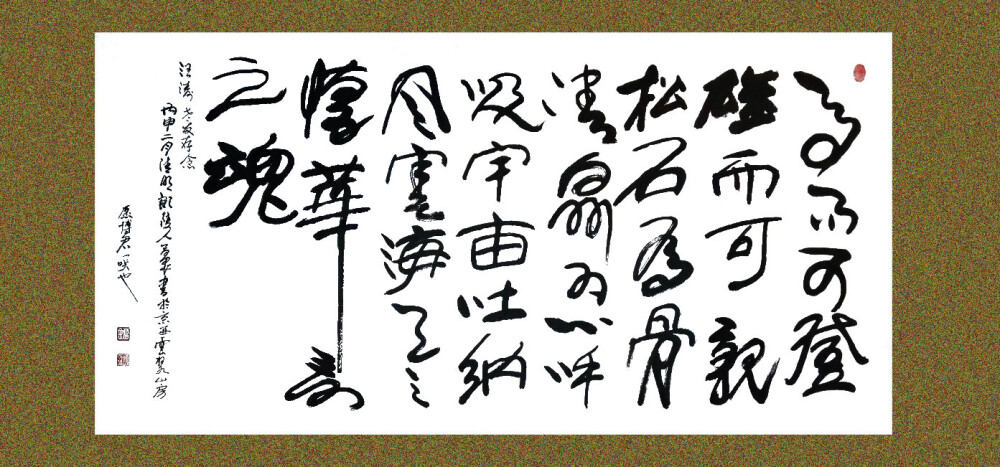 高而可登
雄而可親
松石為骨
清泉為心呼
吸宇宙吐納
風雲海天之
懷華夏
之魂
汪濤老友存念
丙申二月清明 人 書於京 雲 山房
愿博君一咲也